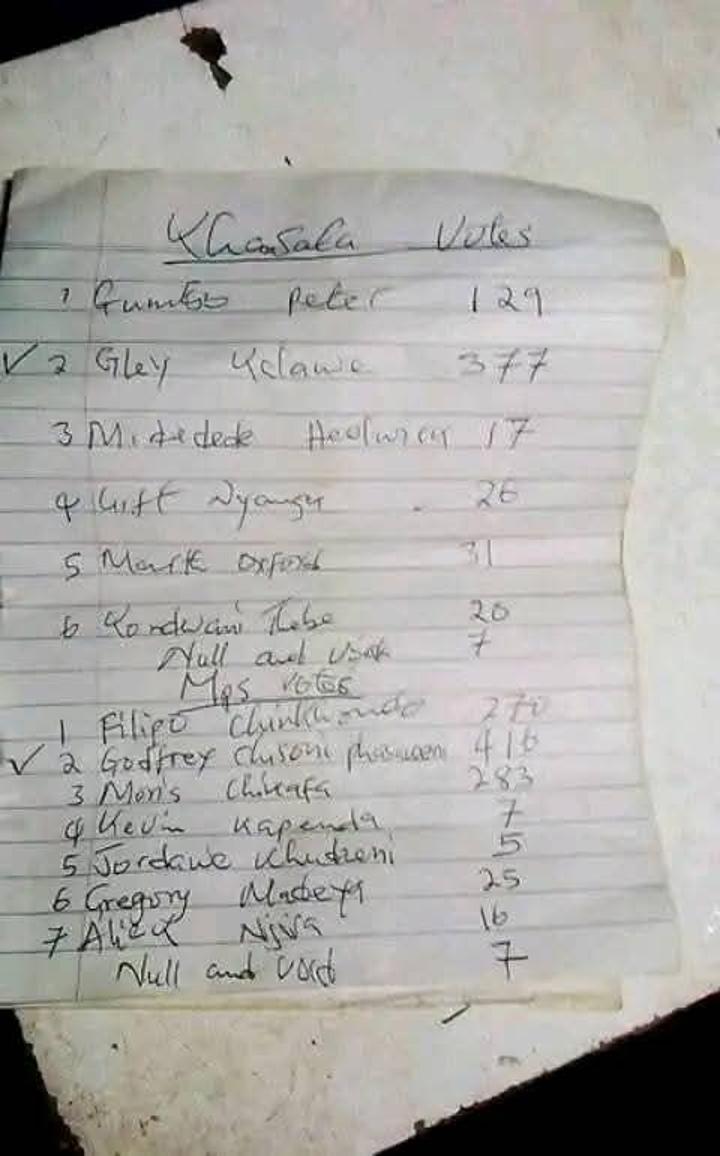 Khansala Votes
1 Gumbo Peter 129
✓ 2 Gley Kalawe 377
3 M 17
4 Gift Nyangu 26
5 Mark Oxford 31
6 Kondwani Thebe 20
Null and Void 7
Mps votes
1 Filipo Chinkhondo 270
✓ 2 Godfrey Chisoni 416
3 Moris Chikafa 283
4 Kevin Kapenda 7
5 Jordawe Khudzeni 5
6 Gregory 25
7 Alick Njira 16
Null and Void 7